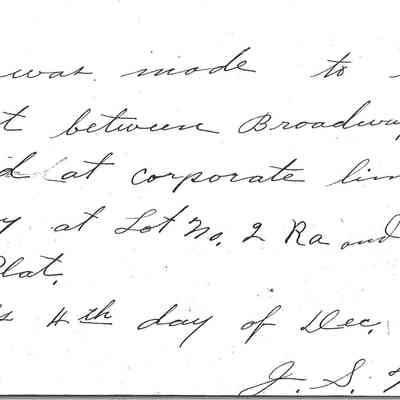 was made to
t between Broadway
d at corporate lim
y at Lot No. 2 Ra and
Plat.
s 4th day of Dec.
J. S.